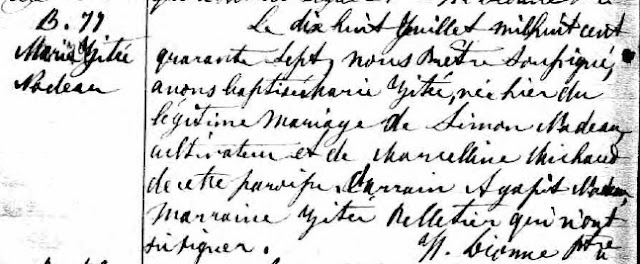 B. 77
Marie Zitée
Nadeau
Le dix huit Juillet mil huit cent
quarante sept, nous Prêtre soussigné,
avons baptisé Marie Zitée, née hier du
légitime mariage de Simon Nadeau,
cultivateur et de Marcelline Michaud
de cette paroisse. Parrain Agapit Nadeau,
Marraine Zitée Pelletier qui n'ont
su signer.
N. Dionne ptre